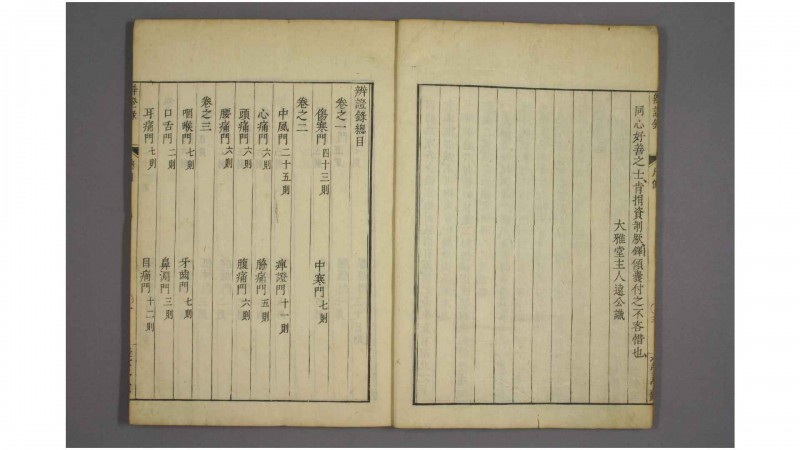 同心好善之士肯捐資剞厥傾囊付之不吝惜也
大雅堂主人遠公識
辨證錄總目
卷之一
傷寒門四十三則 中寒門七則
卷之二
中風門二十五則 痺證門十一則
心痛門六則 脅痛門五則
頭痛門六則 腹痛門六則
腰痛門六則
卷之三
咽喉門七則 牙齒門七則
口舌門二則 鼻淵門三則
耳痛門七則 目痛門十二則
辨證錄